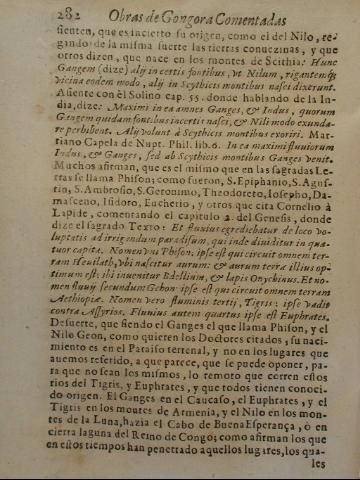 282 Obras de Gongora Comentadas
sienten, que es incierto su origen, como el del Nilo, re-
gando de la misma suerte las tierras conuezinas, y que
otros dizen, que nace en los montes de Scithia: Hunc
Gangem (dize) alij in certis fontibus, vt Nilum, rigantemq;
vicina eodem modo, alij in Scythicis montibus nasci dixerunt.
Asiente con èl Solino cap. 55. donde hablando de la In-
dia, dize: Maximi in ea amnes Ganges, & Indus, quorum
Gangem quidam fontibus incertis nasci, & Nili modo exunda-
re perhibent. Alij volunt à Scythicis montibus exoriri. Mar-
tiano Capela de Nupt. Phil. lib. 6. In ea maximi fluuiorum
Indus, & Ganges, sed ab Scythicis montibus Ganges venit.
Muchos afirman, que es el mismo que en las sagradas Le-
tras se llama Phison; como fueron, S. Epiphanio, S. Agus-
tin, S. Ambrosio, S. Geronimo, Theodoreto, Iosepho, Da-
masceno, Isidoro, Eucherio, y otros que cita Cornelio à
Lapide, comentando el capitulo 2. del Genesis, donde
dize el sagrado Texto: Et fluuius egrediebatur de loco vo-
luptatis ad irrigendum paradisum, qui inde diuiditur in qua-
tuor capita. Nomen vni Phison: ipse est qui circuit omnem ter-
ram Heuilath, vbi nascitur aurum: & aurum terræ illius op-
timum est: ibi inuenitur Bdellium, & lapis Onychinus. Et no-
men fluuij secundum Gehon: ipse est qui circuit omnem terram
Aethiopiæ. Nomen vero fluminis tertij, Tigris: ipse vadit
contra Assyrios. Fluuius autem quartus ipse est Euphrates.
Desuerte, que siendo el Ganges el que llama Phison, y el
Nilo Geon, como quieren los Doctores citados, su naci-
miento es en el Paraiso terrenal, y no en los lugares que
auemos referido, a que parece, que se puede oponer, pa-
ra que no sean los mismos, lo remoto que corren estos
rios del Tigris, y Euphrates, y que todos tienen conoci-
do origen. El Ganges en el Caucaso, el Euphrates, y el
Tigris en los montes de Armenia, y el Nilo en los mon-
tes de la Luna, hazia el Cabo de Buena Esperança, ò en
cierta laguna del Reino de Congo; como afirman los que
en estos tiempos han penetrado aquellos lugares, los qua-
les